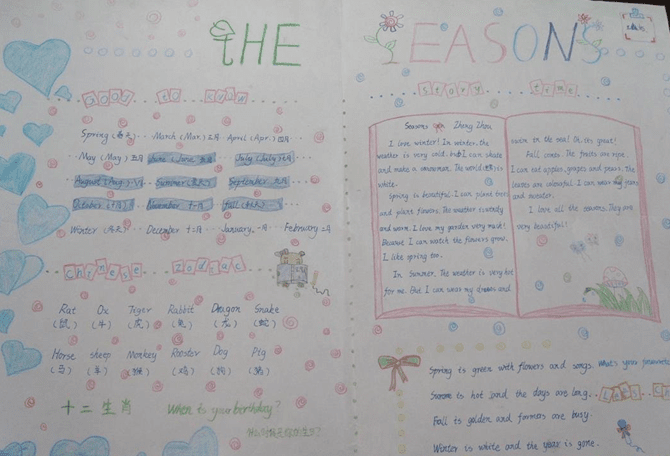 THE SEASONS
good to know
Spring (春天) March (Mar.) 三月 April (Apr.) 四月
May (May) 五月 June (June) 六月 July (July) 七月
August (Aug.) 八月 Summer (夏天) September 九月
October 十月 November 十一月 fall (秋天)
Winter (冬天) December 十二月 January, 一月 February 二月
chinese zodiac
Rat Ox Tiger Rabbit Dragon Snake
(鼠) (牛) (虎) (兔) (龙) (蛇)
Horse sheep Monkey Rooster Dog Pig
(马) (羊) (猴) (鸡) (狗) (猪)
十二生肖 When is your birthday?
story time
Seasons Zhang Zhan
I love winter! In winter, the
weather is very cold. But I can skate
and make a snowman. The world is
white.
Spring is beautiful. I can plant trees
and plant flowers. The weather is windy
and warm. I love my garden very much!
Because I can watch the flowers grow.
I like spring too.
In Summer. The weather is very hot
for me. But I can wear my dresses and
swim in the sea! Oh, it's great!
Fall comes. The fruits are ripe.
I can eat apples, grapes and pears. The
leaves are colourful. I can wear my jeans
and sweater.
I love all the seasons. They are
very beautiful!
Spring is green with flowers and songs. What's your favourite
Summer is hot and the days are long.
Fall is golden and farmers are busy.
Winter is white and the year is gone.